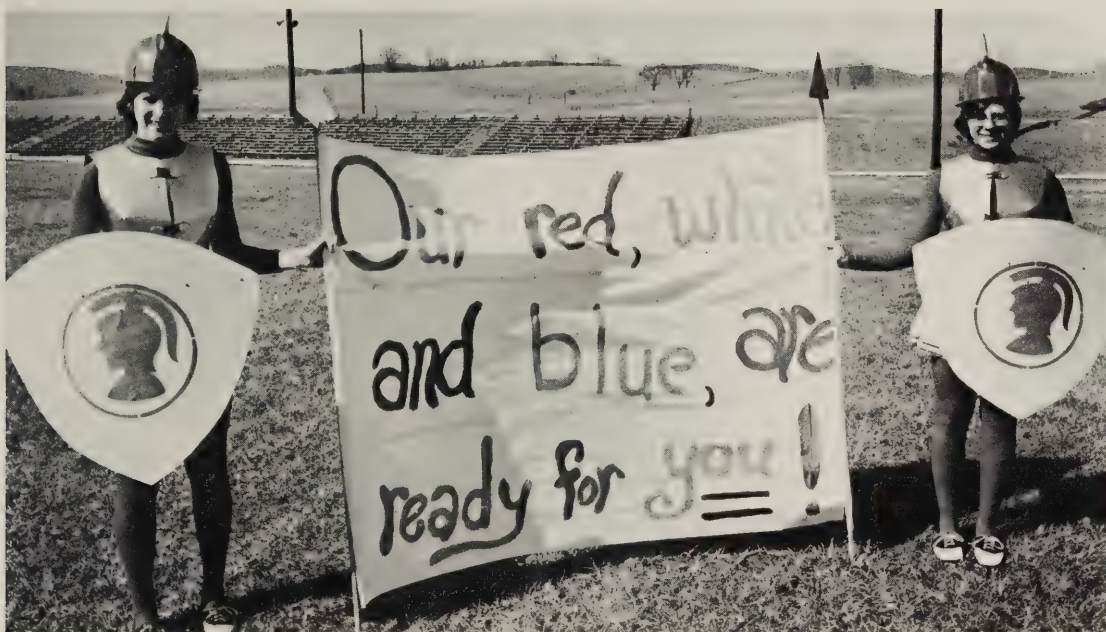 Our red, white
and blue, are
ready for you!